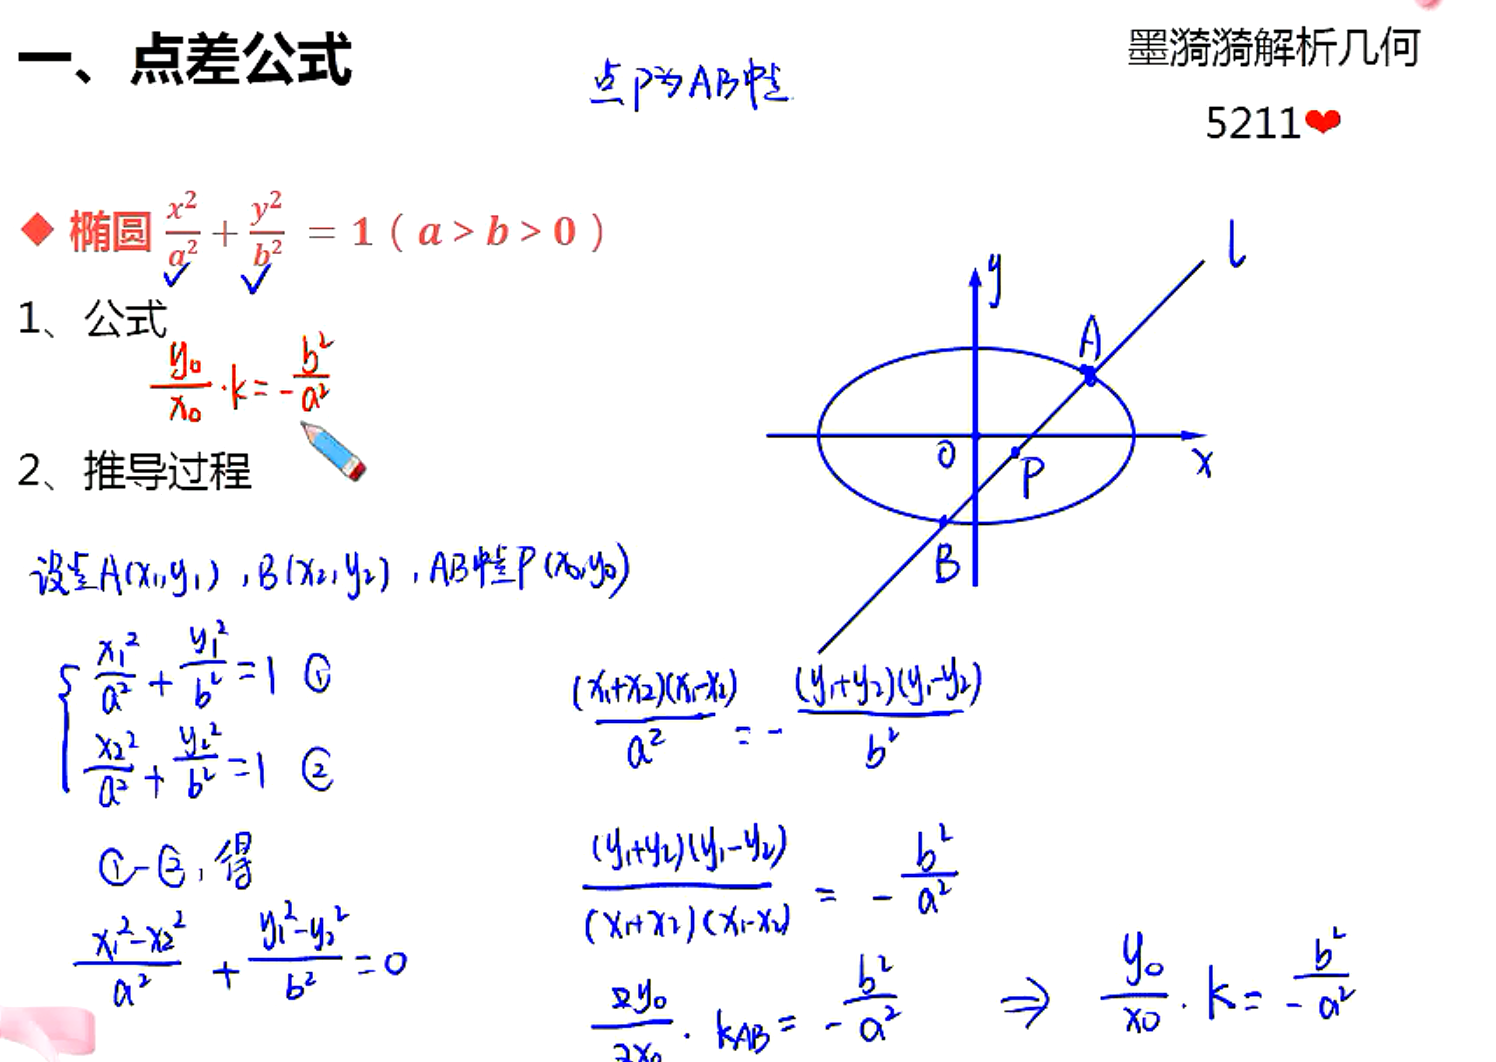 一、点差公式
点P为AB中点
墨漪漪解析几何
5211❤
◆ 椭圆 x²/a² + y²/b² = 1 ( a > b > 0 )
✓ ✓
1、公式
y₀/x₀ · k = - b²/a²
2、推导过程
设点A(x₁,y₁) , B(x₂,y₂) , AB中点P(x₀,y₀)
{ x₁²/a² + y₁²/b² = 1 ①
x₂²/a² + y₂²/b² = 1 ②
①-②, 得
(x₁²-x₂²)/a² + (y₁²-y₂²)/b² = 0
l
y
A
O
P
x
B
(x₁+x₂)(x₁-x₂)/a² = - (y₁+y₂)(y₁-y₂)/b²
(y₁+y₂)(y₁-y₂)/(x₁+x₂)(x₁-x₂) = - b²/a²
2y₀/2x₀ · k_AB = - b²/a² ⇒ y₀/x₀ · k = - b²/a²